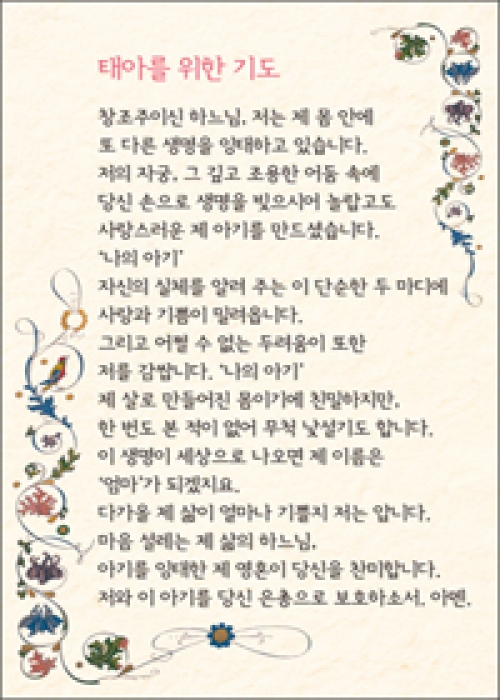 태아를 위한 기도
창조주이신 하느님, 저는 제 몸 안에
또 다른 생명을 잉태하고 있습니다.
저의 자궁, 그 깊고 조용한 어둠 속에
당신 손으로 생명을 빚으시어 놀랍고도
사랑스러운 제 아기를 만드셨습니다.
'나의 아기'
자신의 실체를 알려 주는 이 단순한 두 마디에
사랑과 기쁨이 밀려옵니다.
그리고 어쩔 수 없는 두려움이 또한
저를 감쌉니다. '나의 아기'
제 살로 만들어진 몸이기에 친밀하지만,
한 번도 본 적이 없어 무척 낯설기도 합니다.
이 생명이 세상으로 나오면 제 이름은
'엄마'가 되겠지요.
다가올 제 삶이 얼마나 기쁠지 저는 압니다.
마음 설레는 제 삶의 하느님,
아기를 잉태한 제 영혼이 당신을 찬미합니다.
저와 이 아기를 당신 은총으로 보호하소서. 아멘.